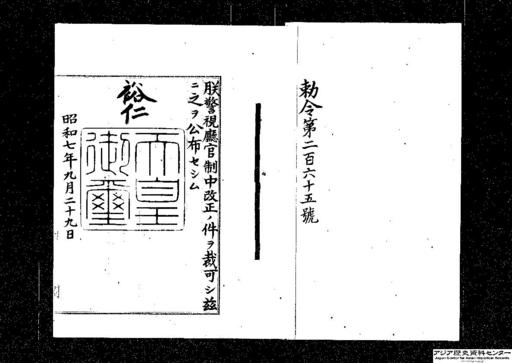 勅令第二百六十五號
朕警視廳官制中改正ノ件ヲ裁可シ茲
ニ之ヲ公布セシム
裕仁
天皇
御璽
昭和七年九月二十九日
アジア歴史資料センター
Japan Center for Asian Historical Records